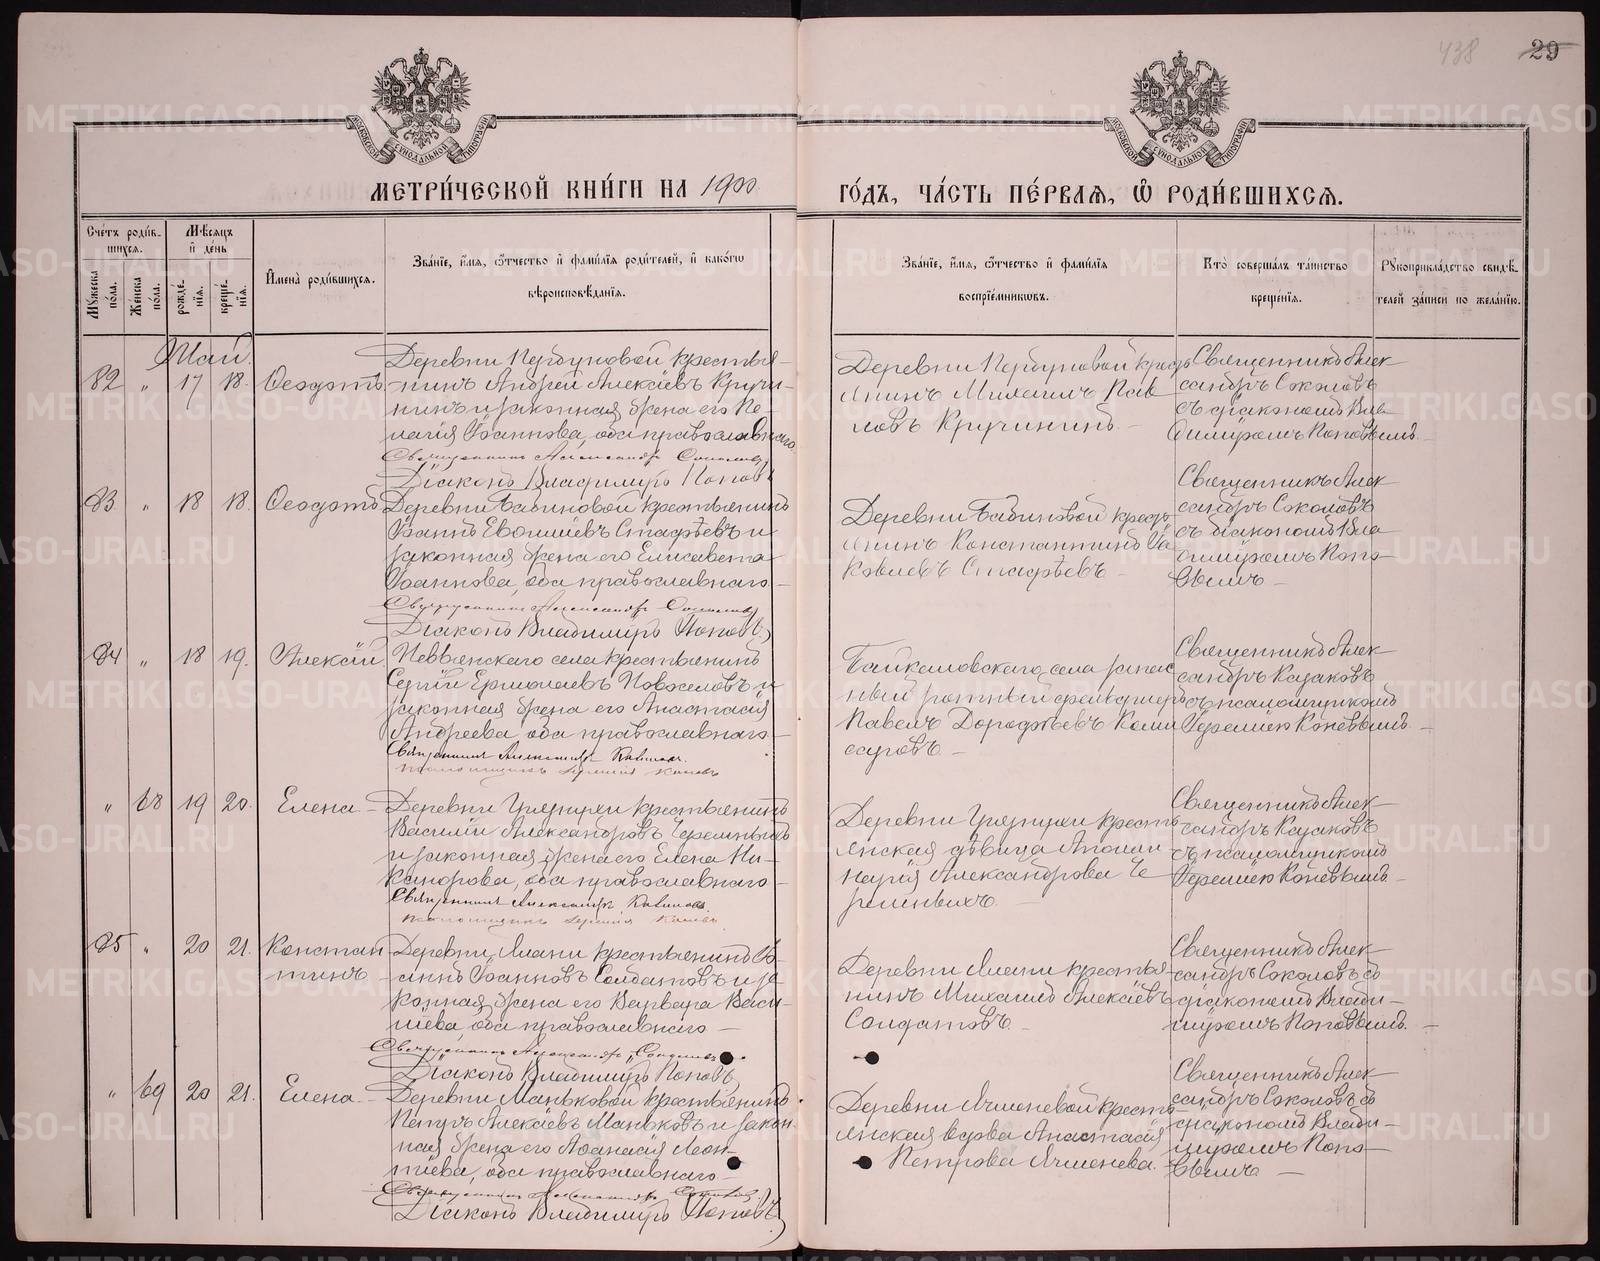 438 29
МЕТРИ́ЧЕСКОЙ КНИ́ГИ НА 1900 ГО́ДЪ, ЧА́СТЬ ПЕ́РВАЯ, Ѡ РОДИ́ВШИХСЯ.
Сче́тъ роди́вшихся.
Мѣ́сяцъ и де́нь
Му́жеска по́ла.
Же́нска по́ла.
рожде́нїя.
креще́нїя.
Имена̀ роди́вшихся.
Зва́нїе, и́мя, ѻ́тчество и фами́лїя роди́телей, и како́гѡ
вѣроисповѣ́данїя.
Зва́нїе, и́мя, ѻ́тчество и фами́лїя
воспрїе́мникѡвъ.
Кто̀ соверша́лъ та́инство
креще́нїя.
Рукоприкла́дство свидѣ́-
телей за́писи по жела́нїю.
Май.
82 " 17 18. Ѳеодотъ
Деревни Первуновой крестья-
нинъ Андрей Алексѣевъ Кручи-
нинъ и законная жена его Пе-
лагія Іоаннова, оба православнаго
Священникъ Александръ Соколовъ
Діаконъ Владиміръ Поповъ
Деревни Первуновой кресть
янинъ Михаилъ Пав
ловъ Кручининъ
Священникъ Алек-
сандръ Соколовъ
съ діакономъ Вла
диміромъ Поповымъ
83 " 18 18. Ѳеодотъ
Деревни Бабиновой крестьянинъ
Іоаннъ Евѳиміевъ Стафѣевъ и
законная жена его Елисавета
Іоаннова, оба православнаго
Священникъ Александръ Соколовъ
Діаконъ Владиміръ Поповъ
Деревни Бабиновой кресть
янинъ Константинъ Іа
ковлевъ Стафѣевъ
Священникъ Алек
сандръ Соколовъ
съ діакономъ Вла
диміромъ Попо-
вымъ
84 " 18 19. Алексій
Невьянскаго села крестьянинъ
Сергій Ермолаевъ Новоселовъ и
законная жена его Анастасія
Андреева, оба православнаго
Священникъ Александръ Казаковъ.
псаломщикъ Іеремія Коневъ
Байкаловскаго села запас
ный ротный фельдшеръ
Павелъ Дороѳеевъ Комис
саровъ
Священникъ Алек-
сандръ Казаковъ
съ псаломщикомъ
Іереміею Коневымъ
" 68 19 20. Елена
Василій Александровъ Черемныхъ
и законная жена его Елена Ни-
канорова, оба православнаго
Священникъ Александръ Казаковъ.
псаломщикъ Іеремія Коневъ
янская дѣвица Аполли-
нарія Александрова Че
ремныхъ.
Священникъ Алек-
сандръ Казаковъ
съ псаломщикомъ
Іереміею Коневымъ
85 " 20 21. Констан
тинъ
Деревни Ляпи крестьянинъ Іо-
аннъ Іоанновъ Солдатовъ и за
конная жена его Варвара Васи-
лiева, оба православнаго
Священникъ Александръ Соколовъ
Діаконъ Владиміръ Поповъ
Деревни Ляпи крестья-
нинъ Михаилъ Алексѣевъ
Солдатовъ
Священникъ Алек-
сандръ Соколовъ съ
діакономъ Влади-
міромъ Поповымъ.
" 69 20 21. Елена
Деревни Маньковой крестьянинъ
Петръ Алексѣевъ Маньковъ и закон
ная жена его Аѳанасія Леон-
тіева, оба православнаго
Священникъ Александръ Соколовъ
Діаконъ Владиміръ Поповъ
Деревни Ячменевой кресть-
янская вдова Анастасія
Петрова Ячменева.
Священникъ Алек-
сандръ Соколовъ съ
діакономъ Влади-
міромъ Попо-
вымъ
METRIKI.GASO-URAL.RU